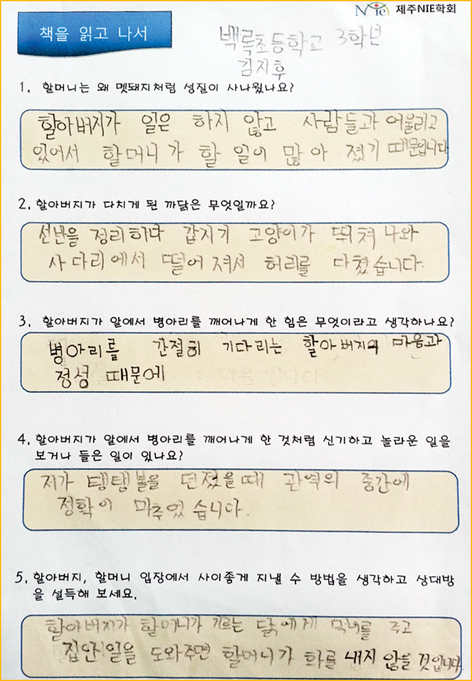 NIE 제주NIE학회
책을 읽고 나서
백록초등학교 3학년
김지후
1. 할머니는 왜 멧돼지처럼 성질이 사나웠나요?
할아버지가 일은 하지 않고 사람들과 어울리고
있어서 할머니가 할 일이 많아 졌기 때문입니다
2. 할아버지가 다치게 된 까닭은 무엇일까요?
선분을 정리하다 갑자기 고양이가 뛰쳐 나와
사다리에서 떨어져서 허리를 다쳤습니다.
3. 할아버지가 알에서 병아리를 깨어나게 한 힘은 무엇이라고 생각하나요?
병아리를 간절히 기다리는 할아버지의 마음과
정성 때문에
4. 할아버지가 알에서 병아리를 깨어나게 한 것처럼 신기하고 놀라운 일을
보거나 들은 일이 있나요?
저가 탱탱볼을 던졌을때 관역의 중간에
정확이 마추었습니다.
5. 할아버지, 할머니 입장에서 사이좋게 지낼 수 방법을 생각하고 상대방
을 설득해 보세요.
할아버지가 할머니가 기르는 닭에게 먹이를 주고
집안일을 도와주면 할머니가 화를 내지 않을 것입니다